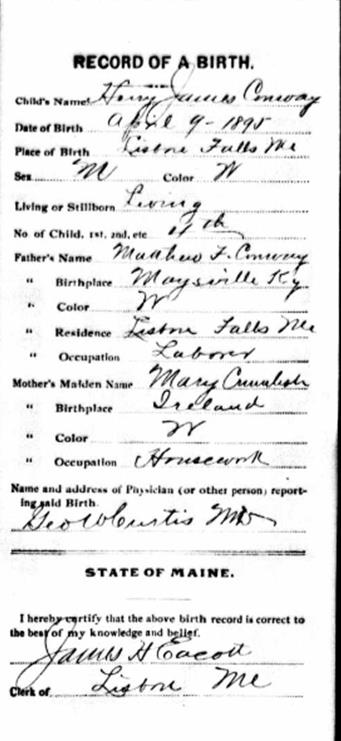 RECORD OF A BIRTH.
Child's Name Harry James Conway
Date of Birth April 9 - 1895
Place of Birth Lisbon Falls Me
Sex M Color W
Living or Stillborn Living
No of Child, 1st, 2nd, etc
Father's Name Matthew F. Conway
" Birthplace Maysville Ky
" Color W
" Residence Lisbon Falls Me
" Occupation Laborer
Mother's Maiden Name Mary
" Birthplace Ireland
" Color W
" Occupation Housework
Name and address of Physician (or other person) report-
ing said Birth.
Geo W Curtis MD
STATE OF MAINE.
I hereby certify that the above birth record is correct to
the best of my knowledge and belief.
James H Eacott
Clerk of Lisbon Me